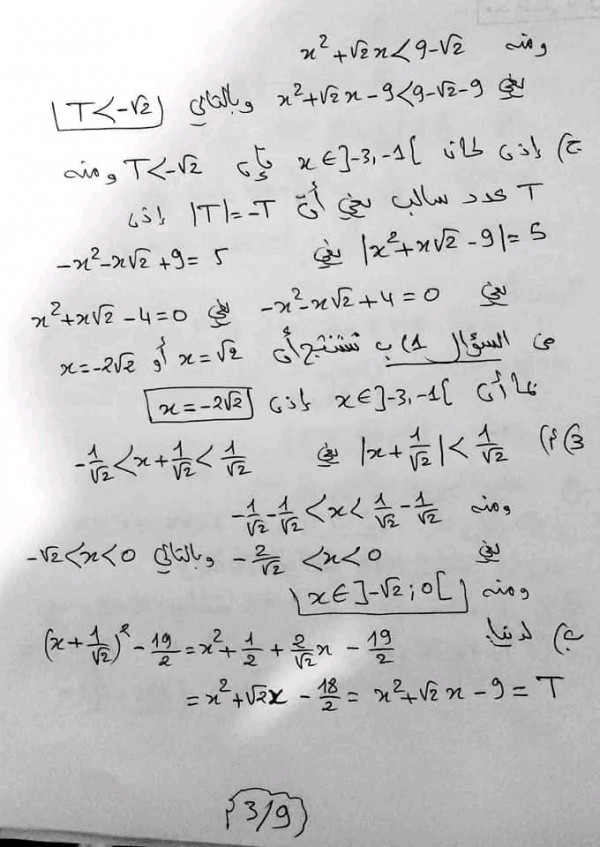 ومنه x²+√2x<9-√2
يعني x²+√2x-9<9-√2-9 وبالتالي T<-√2
ج) إذن لدينا x∈]-3,-1[ فإن T<-√2 ومنه
T عدد سالب يعني أنّ |T|=-T إذن
|x²+x√2-9|=5 يعني -x²-x√2+9=5
يعني -x²-x√2+4=0 يعني x²+x√2-4=0
من السؤال 1) ب نستنتج أن x=√2 أو x=-2√2
بما أن x∈]-3,-1[ إذن x=-2√2
3) أ) |x+1/√2|<1/√2 يعني -1/√2<x+1/√2<1/√2
ومنه -1/√2-1/√2<x<1/√2-1/√2
يعني -2/√2<x<0 وبالتالي -√2<x<0
ومنه x∈]-√2;0[
ب) لدينا (x+1/√2)²-19/2=x²+1/2+2/√2x-19/2
=x²+√2x-18/2=x²+√2x-9=T
3/9